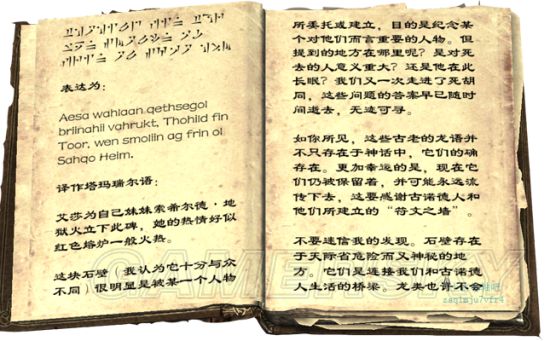 表达为：
Aesa wahlaan qethsegol
briinahii vahrukt, Thohild fin
Toor, wen smoliin ag frin ol
Sahqo Heim.
译作塔玛瑞尔语：
艾莎为自己妹妹索希尔德·地
狱火立下此碑，她的热情好似
红色熔炉一般火热。
这块石壁（我认为它十分与众
不同）很明显是被某一个人物
所委托或建立，目的是纪念某
个对他们而言重要的人物。但
提到的地方在哪里呢？是对死
去的人意义重大？还是他在此
长眠？我们又一次走进了死胡
同，这些问题的答案早已随时
间逝去，无迹可寻。
如你所见，这些古老的龙语并
不只存在于神话中，它们的确
存在。更加幸运的是，现在它
们仍被保留着，并可能永远流
传下去，这要感谢古诺德人和
他们所建立的“符文之墙”。
不要迷信我的发现。石壁存在
于天际省危险而又神秘的地
方。它们是连接我们和古诺德
人生活的桥梁。龙类也许不会
GAMERSKY
zaqlmju7vfr4